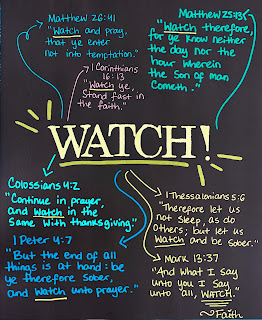 Matthew 26:41
"Watch and pray,
that ye enter
not into temptation."
Matthew 25:13
"Watch therefore,
for ye know neither
the day nor the
hour wherein
the Son of man
cometh."
1 Corinthians
16:13
"Watch ye,
Stand fast in
the faith."
WATCH!
Colossians 4:2
"Continue in prayer,
and watch in the
same with thanksgiving."
1 Peter 4:7
"But the end of all
things is at hand: be
ye therefore sober,
and watch unto prayer."
1 Thessalonians 5:6
"Therefore let us
not sleep, as do
others; but let us
watch and be sober."
Mark 13:37
"And what I say
unto you I say
unto all, WATCH."
~Faith